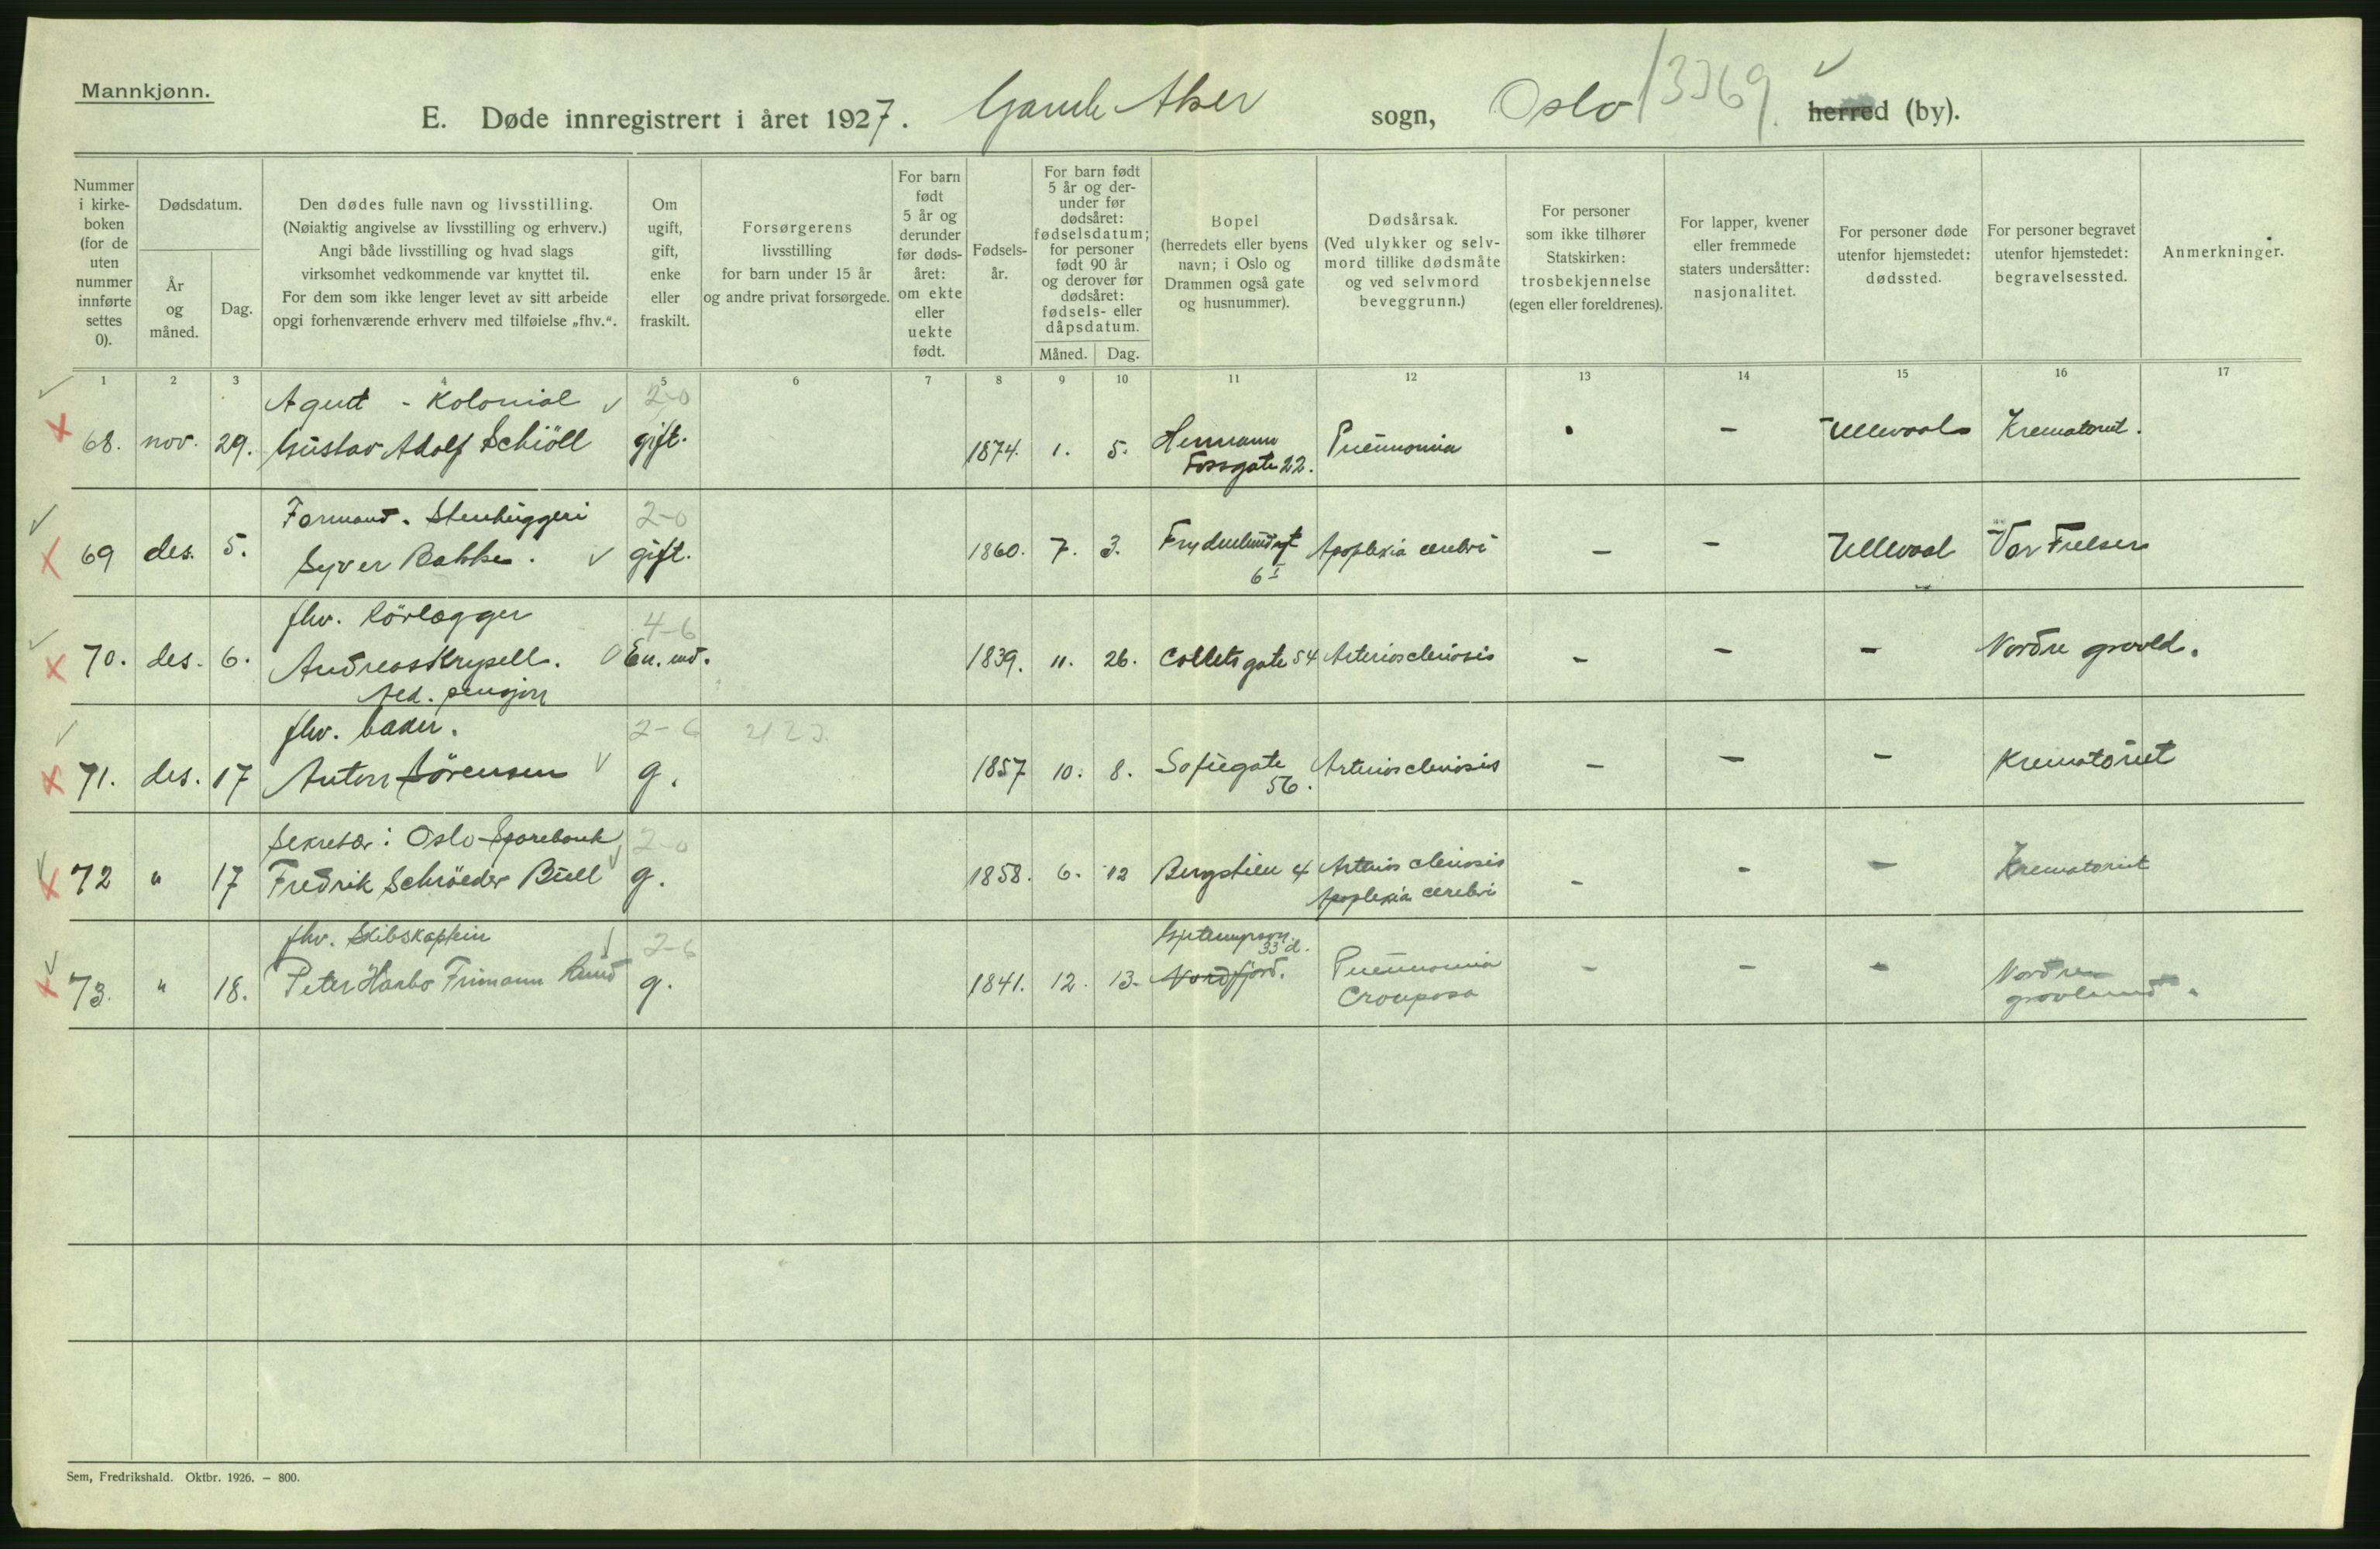 Mannkjønn.
E. Døde innregistrert i året 1927. Gamle Aker sogn, Oslo 13369 herred (by).
Nummer i kirke-boken (for de uten nummer innførte settes 0).
Dødsdatum.
År og måned.
Dag.
Den dødes fulle navn og livsstilling.
(Nøiaktig angivelse av livsstilling og erhverv.)
Angi både livsstilling og hvad slags
virksomhet vedkommende var knyttet til.
For dem som ikke lenger levet av sitt arbeide
opgi forhenværende erhverv med tilføielse „fhv.“.
Om ugift, gift, enke eller fraskilt.
Forsørgerens
livsstilling
for barn under 15 år
og andre privat forsørgede.
For barn født 5 år og derunder før døds-året: om ekte eller uekte født.
Fødsels-år.
For barn født 5 år og der-under før dødsåret: fødselsdatum; for personer født 90 år og derover før dødsåret: fødsels- eller dåpsdatum.
Måned.
Dag.
Bopel
(herredets eller byens
navn; i Oslo og
Drammen også gate
og husnummer).
Dødsårsak.
(Ved ulykker og selv-
mord tillike dødsmåte
og ved selvmord
beveggrunn.)
For personer
som ikke tilhører
Statskirken:
trosbekjennelse
(egen eller foreldrenes).
For lapper, kvener
eller fremmede
staters undersåtter:
nasjonalitet.
For personer døde
utenfor hjemstedet:
dødssted.
For personer begravet
utenfor hjemstedet:
begravelsessted.
Anmerkninger.
1 2 3 4 5 6 7 8 9 10 11 12 13 14 15 16 17
Agent - Kolonial 2-0
68. nov. 29. Gustav Adolf Schiöll gift. 1874. 1. 5. Hermann Fossgate 22. Pneumonia - Ullevaal Krematoriet.
Formand. Stenhuggeri 2-0
69 des. 5. Syver Bakke. gift. 1860. 7. 3. Frydenlundsgt 6 I Apoplexia cerebri - - Ullevaal Vor Frelsers
fhv. Rörlægger 4-6
70. des. 6. Andreas Krysell. En. md. 1839. 11. 26. Colletsgate 54 Arteriosclerosis - - - Nordre gravld.
Ald. pensjon
fhv. bader. 2-6
71. des. 17 Anton Sörensen g. 1857 10. 8. Sofiegate 56. Arteriosclerosis - - - Krematoriet
Sekretær i Oslo Sparebank 2-0
72 " 17 Fredrik Schröeder Büll g. 1858. 6. 12 Bergstien 4 Arteriosclerosis Apoplexia cerebri - - - Krematoriet
fhv. Skibskaptein 2-6
73. " 18. Peter Harbo Frimann Lund g. 1841. 12. 13. Nordfjord. 33 d. Pneumonia Crouposa - - - Nordre gravlund.
Sem, Fredrikshald. Oktbr. 1926. — 800.